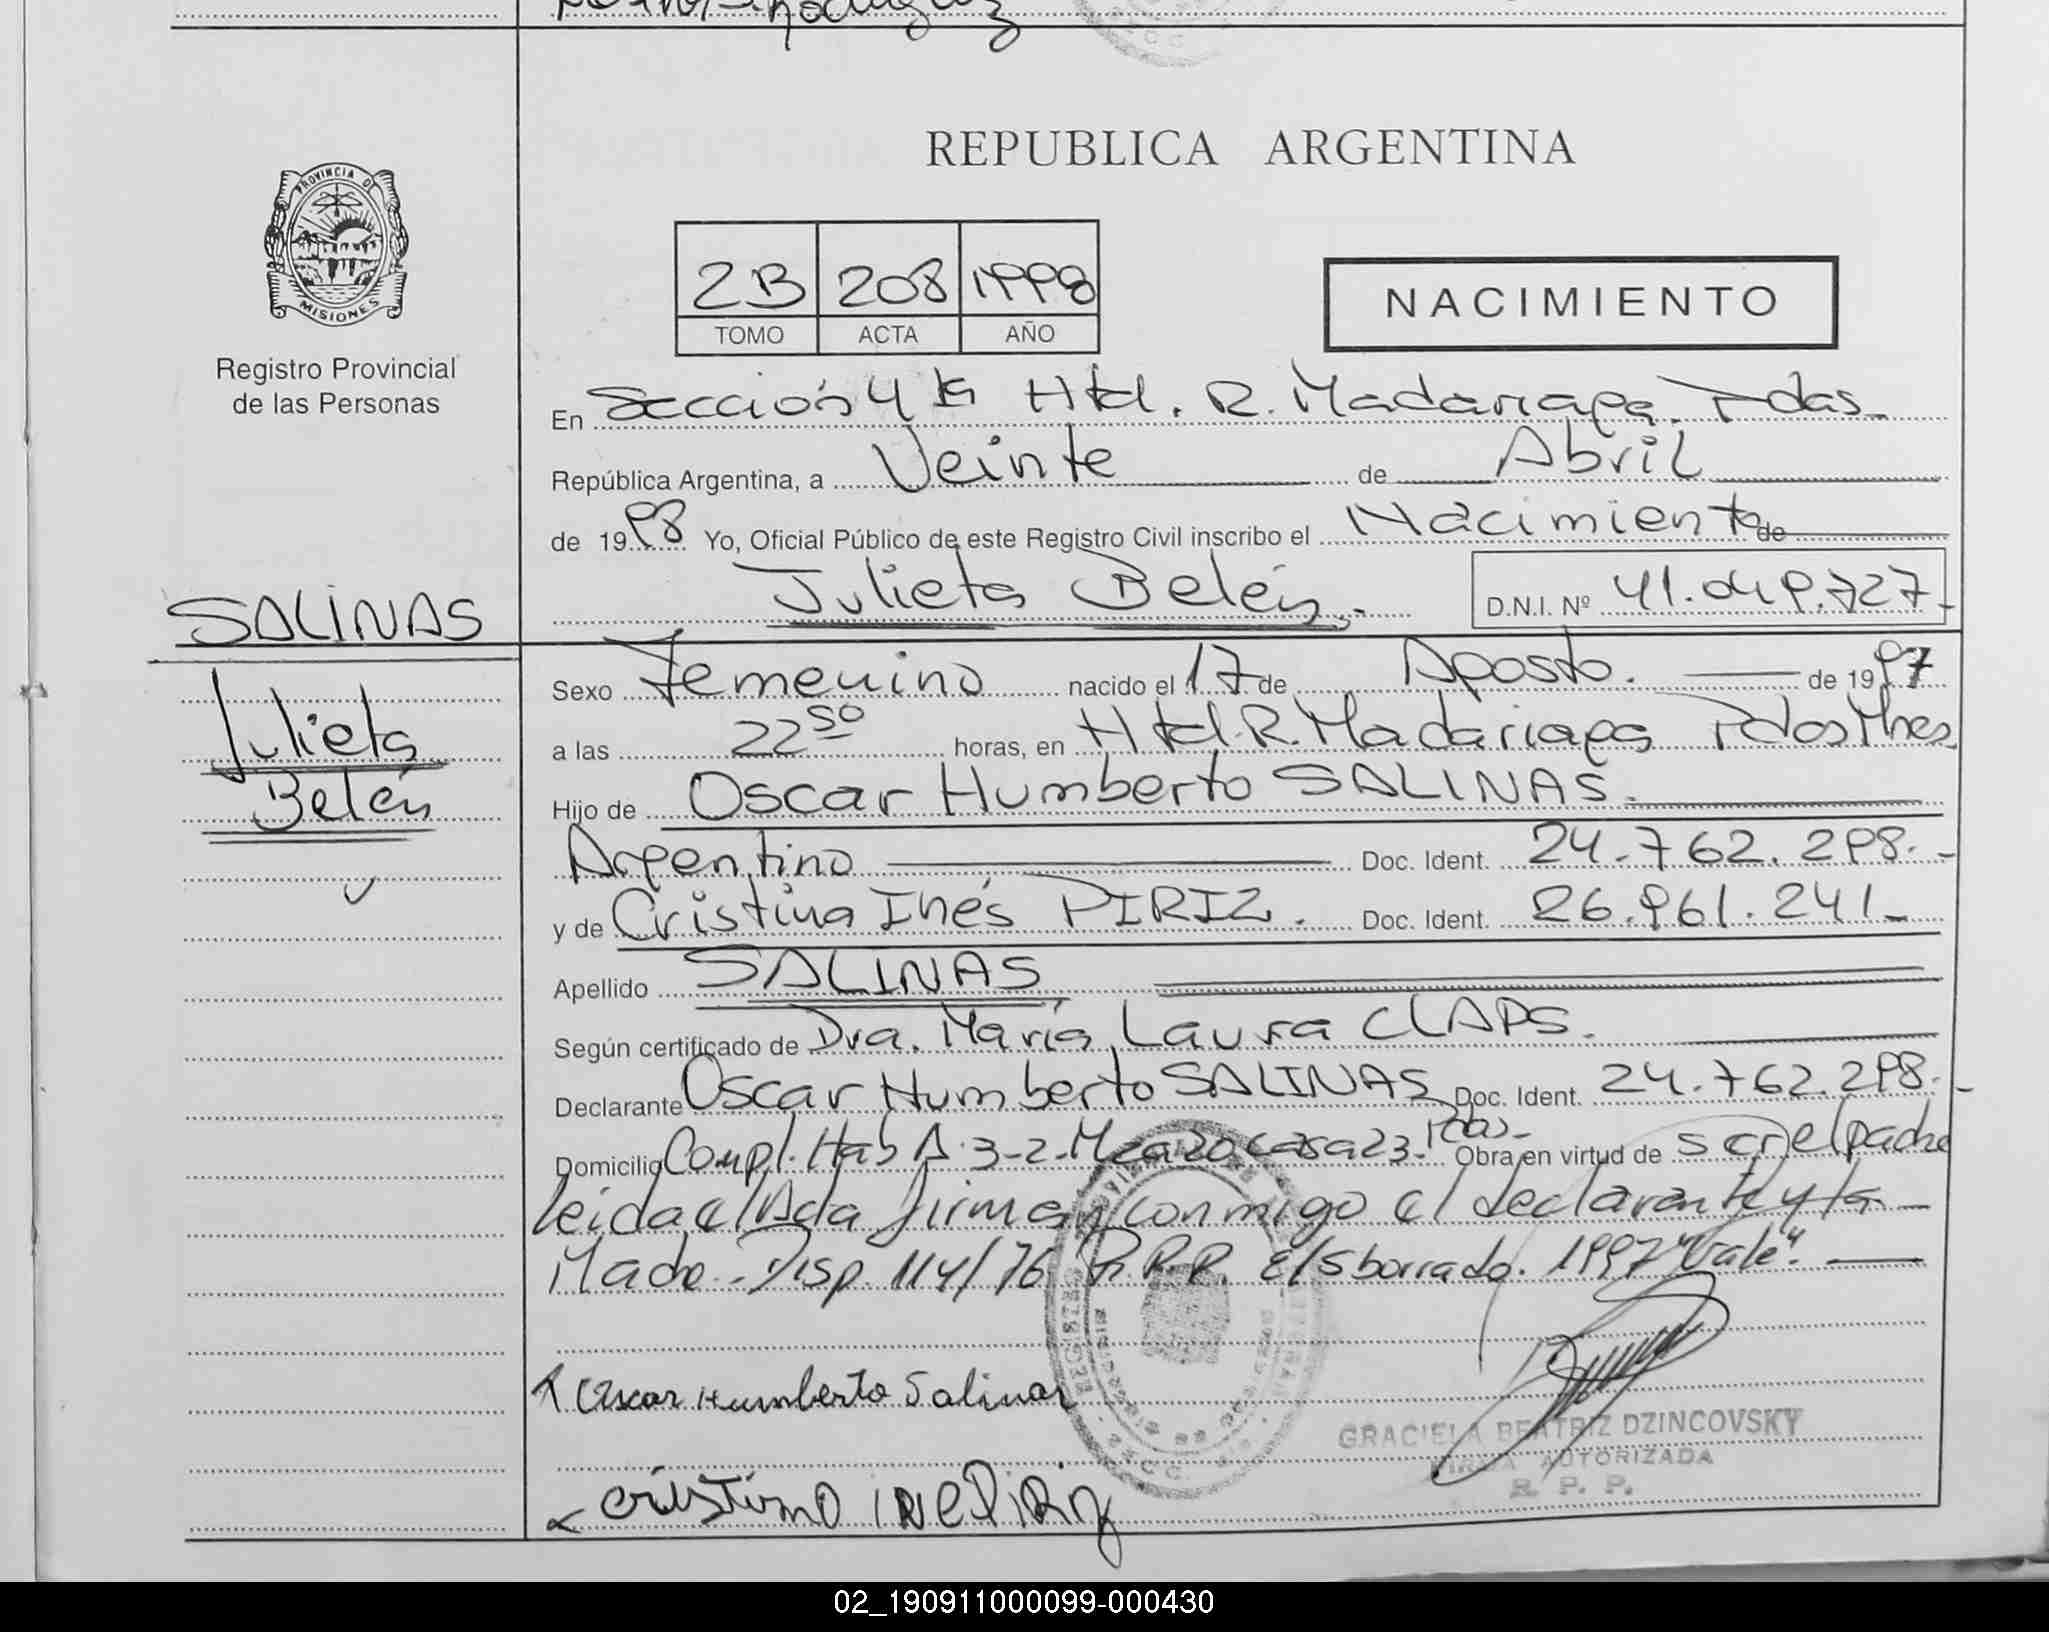 REPUBLICA ARGENTINA
PROVINCIA DE
MISIONES
Registro Provincial
de las Personas
2B 208 1998
TOMO ACTA AÑO
NACIMIENTO
En Sección 4ta Htal. R. Madariaga. Pdas.
República Argentina, a Veinte de Abril
de 1998 Yo, Oficial Público de este Registro Civil inscribo el Nacimiento de
Julieta Belén.- D.N.I. Nº 41.049.727-
SALINAS
Julieta
Belén
Sexo Femenino nacido el 17 de Agosto. de 1997
a las 22 50 horas, en Htal. R. Madariaga Pdas Mnes
Hijo de Oscar Humberto SALINAS.
Argentino Doc. Ident. 24.762.298.-
y de Cristina Inés PIRIZ. Doc. Ident. 26.961.241-
Apellido SALINAS
Según certificado de Dra. María Laura CLAPS.
Declarante Oscar Humberto SALINAS Doc. Ident. 24.762.298.-
Domicilio Compl. Hab A-3-2-Mza 20 casa 23-Pdas- Obra en virtud de ser el padre
leida el Acta firman conmigo el declarante y la
Madre. Disp. 114/76 R.P.P. E/S borrado. 1997 "Vale".
Oscar Humberto Salinas
GRACIELA BEATRIZ DZINCOVSKY
FIRMA AUTORIZADA
R. P. P.
Cristina Ine Piriz
02_190911000099-000430